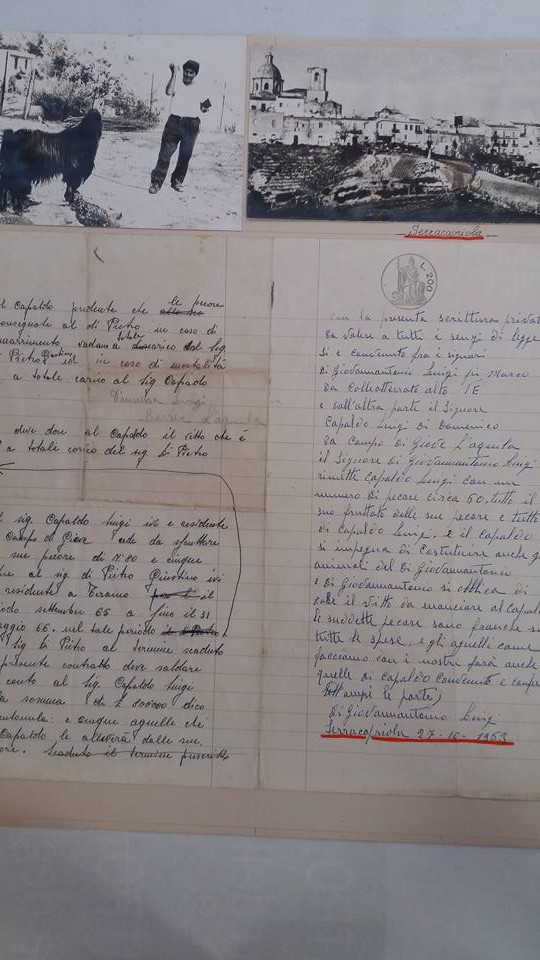 Serracapriola
L. 200
el Capaldo pretente che le pecore
consegnate al di Pietro in caso di
smarrimento vadano a totale carico del sig
Pietro Giustino ed in caso di mortalità
a totale carico al sig Capaldo
Luigi
L'Aquila
deve dare al Capaldo il vitto che è
a totale carico del sig Di Pietro
el sig. Capaldo Luigi ivi e residente
Campo di Giove cede da sfruttare
sue pecore di N. 80 e cinque
al sig. di Pietro Giustino ivi
residente a Teramo per il il
periodo settembre 65 a fino il 31
maggio 66. nel tale periodo
sig Di Pietro al termine scaduto
presente contratto deve saldare
conto al sig Capaldo Luigi
la somma di £ dico
e cinque agnelle che
Capaldo le alleverà dalle sue
Scaduto il termine
con la presente scrittura privata
da valere a tutti i sensi di legge
si e convenuto fra i signori
di Giovannantonio Luigi fu Marco
da Collotterrato alto TE
e dall'altra parte il Signore
Capaldo Luigi Di Domenico
da Campo Di Giove L'aquila
il Signore Di Giovannantonio Luigi
rimette Capaldo Luigi con un
numero Di pecore circa 60, tutto il
suo fruttato delle sue pecore e tutto
di Capaldo Luigi, e il capaldo
si impegna di
animali del Di Giovannantonio
e Di Giovannantonio si obbliga di
il vitto da manciare al Capaldo
le suddette pecore sono franche di
tutte le spese, e gli agnelli come
facciamo con i nostri farà anche
quelle di capaldo convenuto e
le parte
Di Giovannantonio Luigi
Serracapriola 27-10-1963